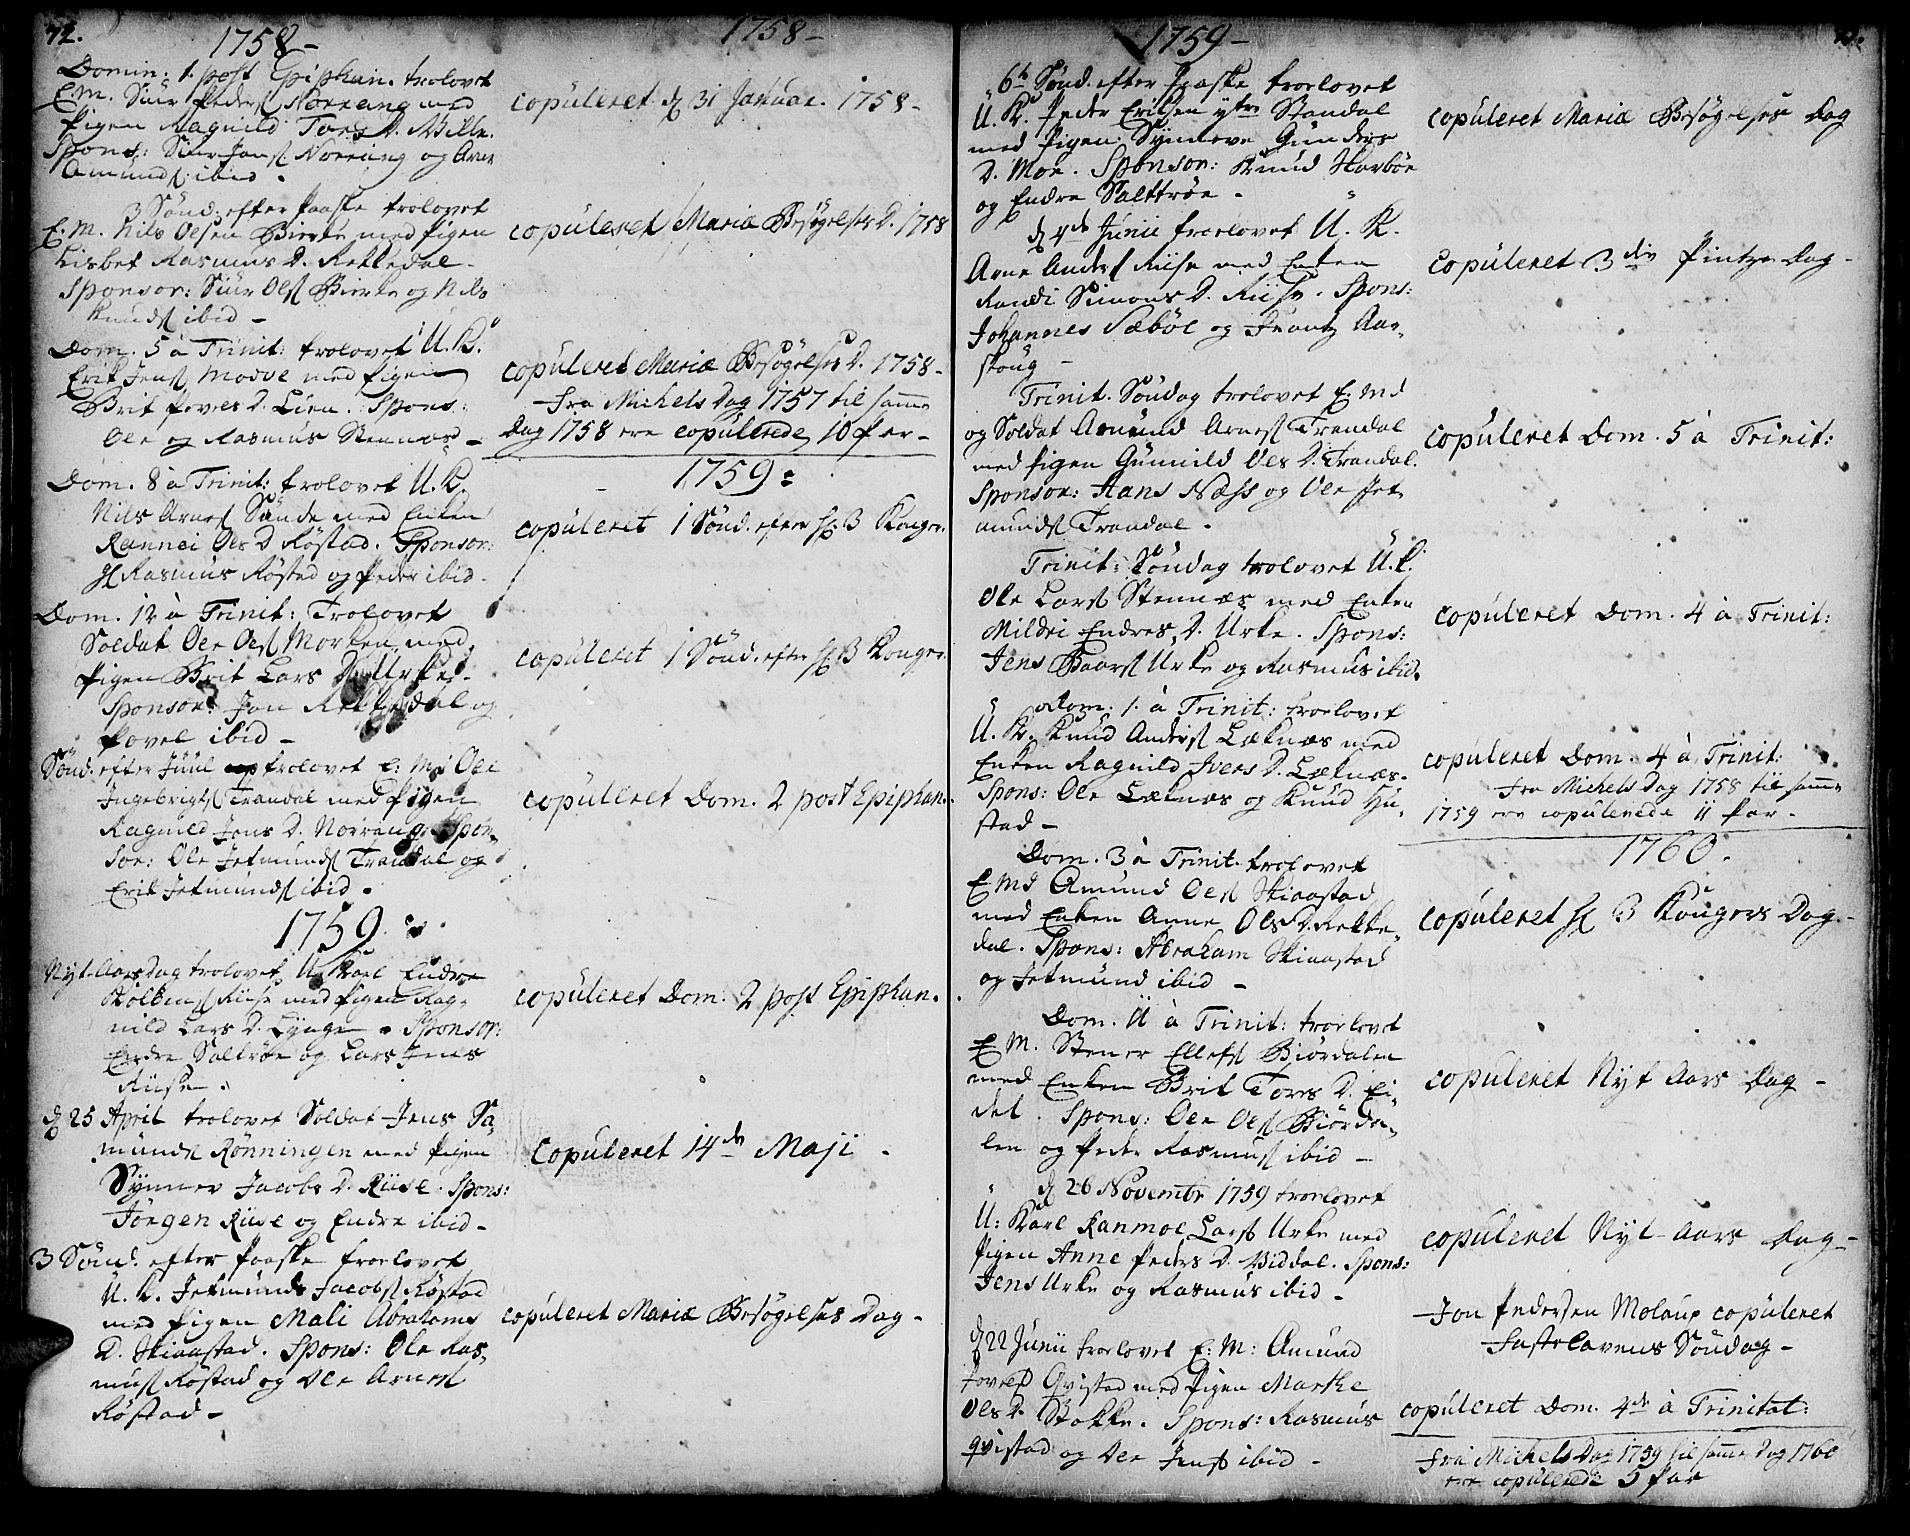 72.
1758 -
Domin: 1. post Epiphan. trolovet
E. M. Siur Peders Norrang med
Pigen Ragnild Tors D. Mille.
Spons: Siur Jons Norrang og Arne
Amunds ibid.
3 Sønd. efter Paaske trolovet
E. M. Nils Olsen Bierke med Pigen
Lisbet Rasmus D. Rekkedal.
Sponsor: Siur Ols Bierke og Nils
Knuds ibid -
Dom. 5 à Trinit: trolovet U. K.
Erik Jens Modve med Pigen
Brit Povels D. Lien. Spons:
Ole og Rasmus Stennæs -
Dom. 8 à Trinit: trolovet U. K.
Nils Arnes Sunde med Enken
Rannei Ols D. Røstad. Sponsor:
Rasmus Røstad og Peder ibid.
Dom. 12 à Trinit: Trolovet
Soldat Ole Ols Morken med
Pigen Brit Lars D. Urked.
Sponsor: Jon Rekkedal og
Povel ibid -
Sønd. efter Juul trolovet E: M: Ole
Ingebrigts Trandal med Pigen
Ragnild Jons D. Norrang. Spon-
sor: Ole Jetmunds Trandal og
Erik Jetmunds ibid.
1759.
Nyt-Aarsdag trolovet U. Karl Endre
Riise med Pigen Rag-
nild Lars D. Lynge. Sponsor:
Endre Saltrøe og Lars Jens
Riise.
d 25 April trolovet Soldat Jens Sa-
munds Rønningen med Pigen
Synnev Jacobs D. Riise. Spons:
Jørgen Riise og Endre ibid -
3 Sønd. efter Paaske troelovet
U. K. Jetmunds Jacobs Røstad
med Pigen Mali Abrahams
D. Skiaastad. Spons: Ole Ras-
mus Røstad og Ole Arnes
Røstad -
1758 -
copuleret d 31 Januar. 1758 -
copuleret Mariæ Besøgelses D. 1758
copuleret Mariæ Besøgelses D. 1758 -
Fra Michels Dag 1757 til samme
Dag 1758 ere copulerede 10 Par -
1759:
copuleret 1 Sønd. efter H. 3 Konger.
copuleret 1 Sønd. efter H. 3 Konger.
copuleret Dom. 2 post Epiphan.
copuleret Dom. 2 post Epiphan.
copuleret 14de Maji.
copuleret Mariæ Besøgelses Dag -
1759 -
6te Sønd. efter Paaske troelovet
U. K. Peder Eriksen ytre Standal
med Pigen Synneve Gunders
D. Moe. Sponsor: Knud Harbøe
og Endre Salttrøe -
d 4de Junii troelovet U. K.
Arne Anders Riise med Enken
Randi Simons D. Riise. Spons:
Johannes Sæbøe og Frantz Aar-
skoug -
Trinit. Søndag trolovet E. Md
og Soldat Amund Arnes Trandal
med Pigen Gunnild Ols D. Trandal.
Sponsor: Hans Næss og Ole Jet-
munds Trandal -
Trinit: Søndag trolovet U. K.
Ole Lars Stennæs med Enken
Mildri Endres D. Urke. Spons:
Jens Baars Urke og Rasmus ibid.
Dom. 1. à Trinit: troelovet
U. K. Knud Anders Leknæs med
Enken Ragnild Ivers D. Leknæs.
Spons: Ole Leknæs og Knud Hu-
stad -
Dom. 3 à Trinit. trolovet
E Md Amund Ols Skiaastad
med Enken Anne Ols D. Rekke-
dal. Spons: Abraham Skiaastad
og Jetmund ibid -
Dom. 11 à Trinit: troelovet
E. M. Stener Ellefs Biørdalen
med Enken Brit Tores D. Ei-
det. Spons: Ole Ols Biørda-
len og Peder Rasmus ibid -
d 26 Novembr 1759 troelovet
U: Karl Kanmoe Lars Urke med
Pigen Anne Peders D. Viddal. Spons:
Jens Urke og Rasmus ibid -
d 22 Junii troelovet E: M: Amund
Povels Qvistad med Pigen Marthe
Ols D. Stokke. Spons: Rasmus
Qvistad og Ole Jens ibid -
copuleret Mariæ Besøgelses Dag
Copuleret 3die Pintze Dag -
copuleret Dom. 5 à Trinit:
copuleret Dom. 4 à Trinit:
copuleret Dom. 4 à Trinit:
Fra Michels Dag 1758 til samme
1759 ere copulerede 11 Par -
1760.
copuleret H. 3 Kongers Dag -
copuleret Nyt Aars Dag -
copuleret Nyt-Aars Dag -
Jon Pedersen Molaup copuleret
Fastelavens Søndag -
copuleret Dom. 4de à Trinitat:
Fra Michels Dag 1759 til samme Dag 1760
ere copulerede 5 Par